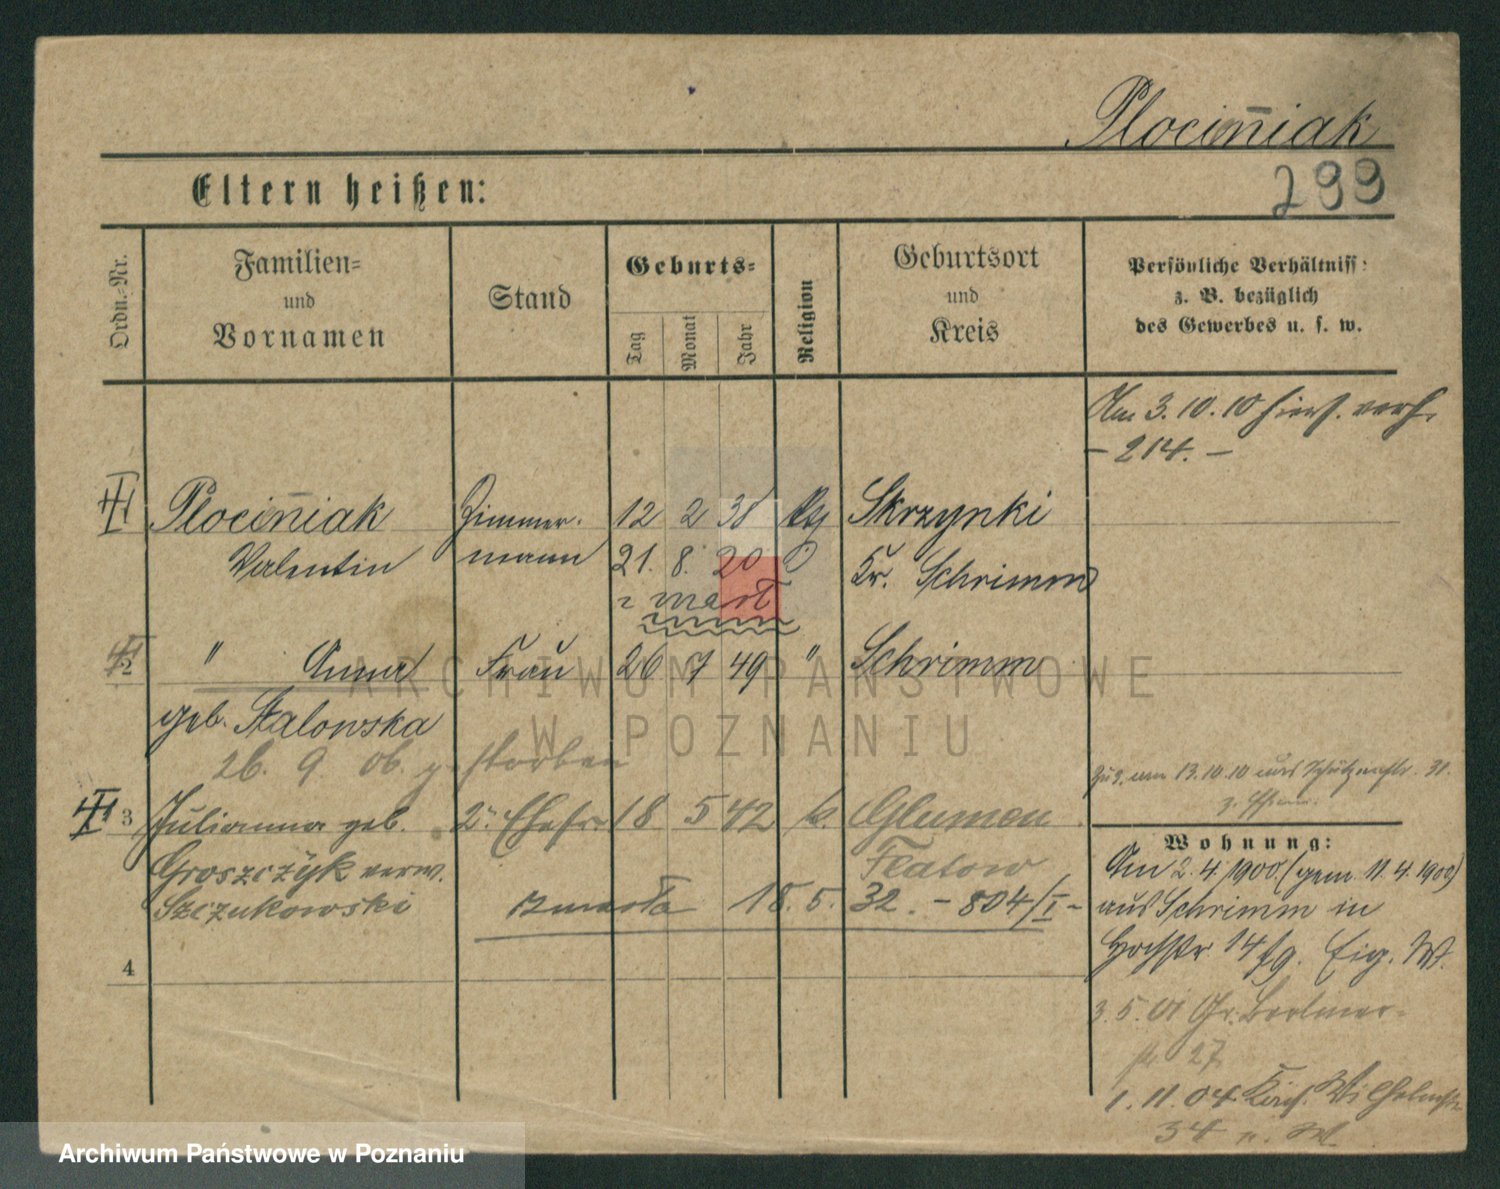 Plocin̄iak
Eltern heißen:
299
Ordn.-Nr.
Familien-
und
Vornamen
Stand
Geburts-
Tag
Monat
Jahr
Religion
Geburtsort
und
Kreis
Persönliche Verhältniss
z. B. bezüglich
des Gewerbes u. s. w.
Am 3.10.10 hiers. verh.
- 214. -
Plocin̄iak Zimmer- 12 2 38 Skrzynki
Valentin mann 21. 8. 20 Kr. Schrimm
" Anna Frau 26 7 49 " Schrimm
2
geb. Stalowska
26. 9. 06. gestorben
3 Julianna geb. 2. Ehefr. 18 5 42 k. Glumen
Groszczyk verw. Flatow
Szczukowski zmarła 18. 5. 32. - 804/I -
4
Zuz. am 13.10.10 aus Schützenstr. 31.
Wohnung:
Am 2. 4. 1900. (gem. 11. 4. 1900)
aus Schrimm in
14 Eig. W.
3. 5. 01 Gr. Berliner-
str 27
1. 11. 04 Wilhelmstr
34
ARCHIWUM PAŃSTWOWE
W POZNANIU
Archiwum Państwowe w Poznaniu